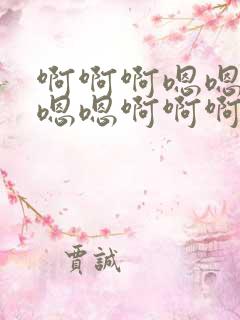 啊啊啊嗯嗯
嗯嗯啊啊啊
賈誠